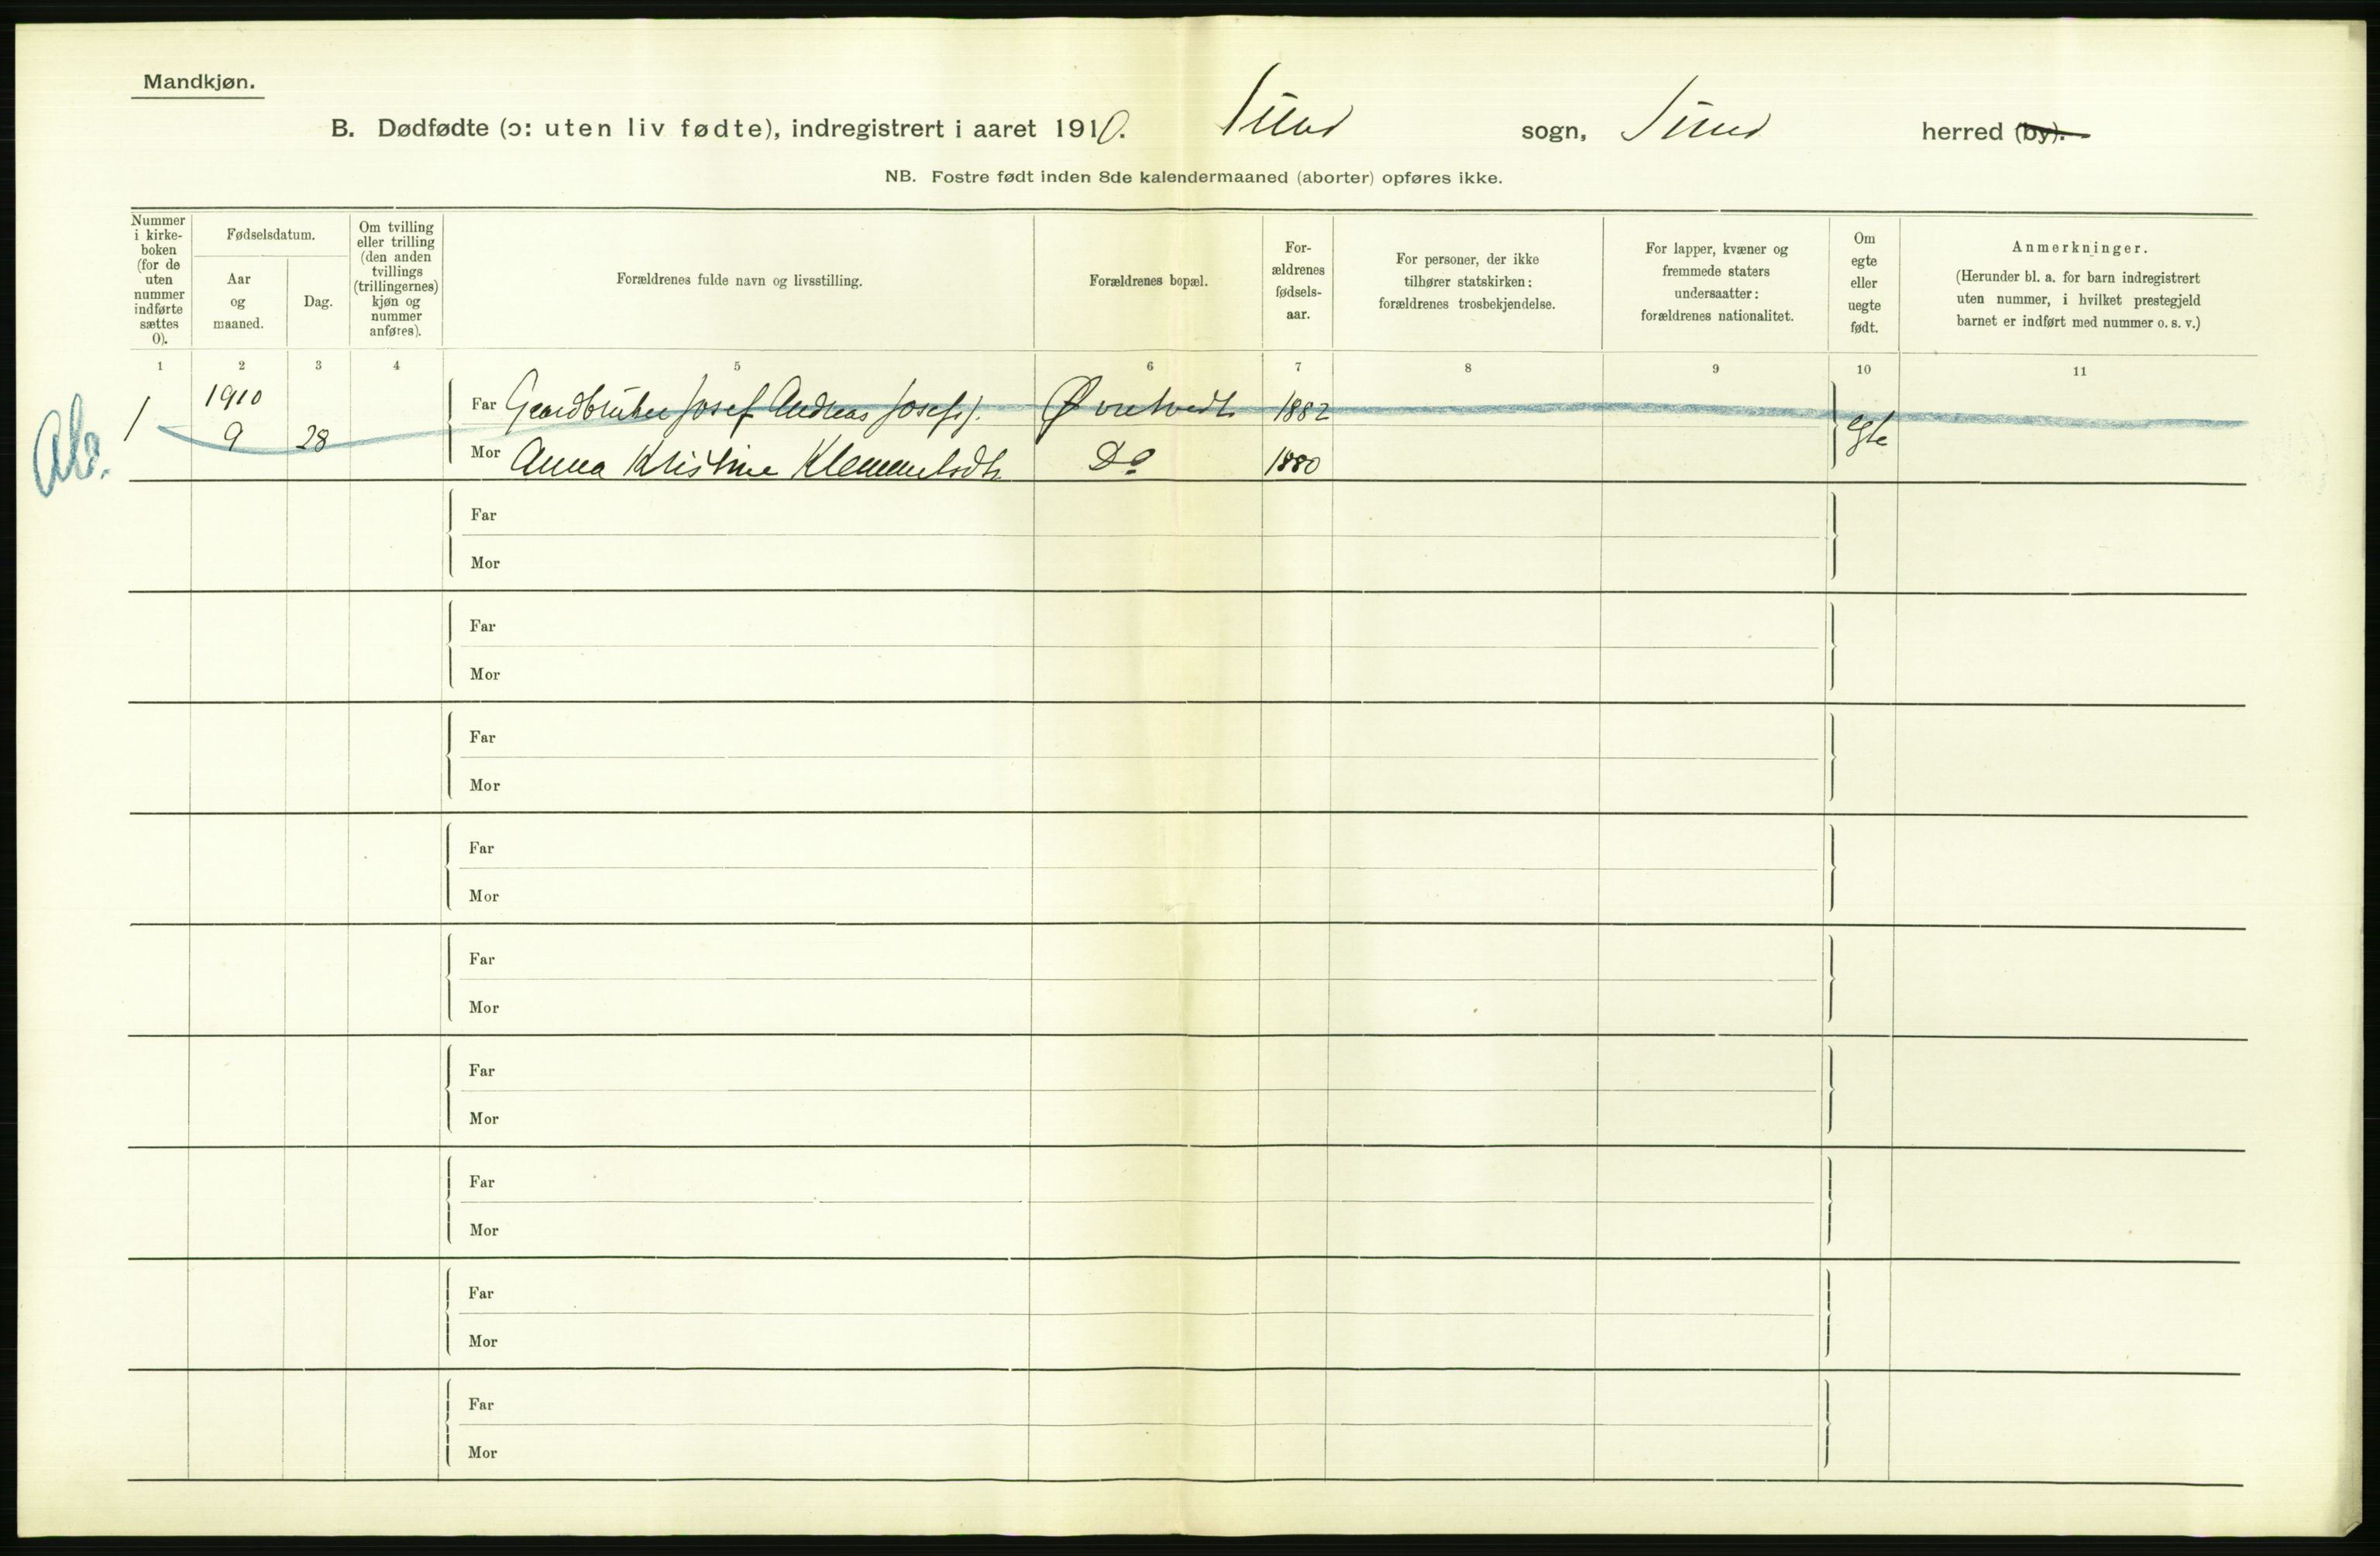 Mandkjøn.
B. Dødfødte (ɔ: uten liv fødte), indregistrert i aaret 1910. Sund sogn, Sund herred (by).
NB. Fostre født inden 8de kalendermaaned (aborter) opføres ikke.
Nummer
i kirke-
boken
(for de
uten
nummer
indførte
sættes
0).
Fødselsdatum.
Aar
og
maaned.
Dag.
Om tvilling
eller trilling
(den anden
tvillings
(trillingernes)
kjøn og
nummer
anføres).
Forældrenes fulde navn og livsstilling.
Forældrenes bopæl.
For-
ældrenes
fødsels-
aar.
For personer, der ikke
tilhører statskirken:
forældrenes trosbekjendelse.
For lapper, kvæner og
fremmede staters
undersaatter:
forældrenes nationalitet.
Om
egte
eller
uegte
født.
Anmerkninger.
(Herunder bl. a. for barn indregistrert
uten nummer, i hvilket prestegjeld
barnet er indført med nummer o. s. v.)
1 2 3 4 5 6 7 8 9 10 11
1910
1 Far Gaardbruker Josef Andreas Josefs). 1882
9 28 egte
Mor Anna Kristine Klemmetsdtr Do 1880
Far
Mor
Far
Mor
Far
Mor
Far
Mor
Far
Mor
Far
Mor
Far
Mor
Far
Mor
Far
Mor